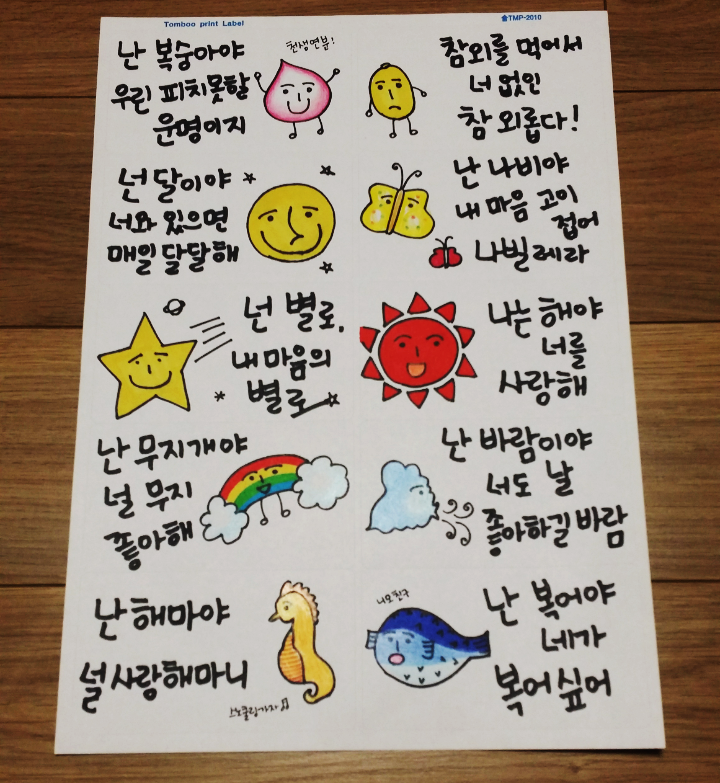 Tomboo print Label
TMP-2010
난 복숭아야
천생연분!
우린 피치못할
운명이지
참외를 먹어서
너 없인
참 외롭다!
넌 달이야
너와 있으면
매일 달달해
난 나비야
내 마음 고이
접어
나빌레라
넌 별로,
내 마음의
별로
나는 해야
너를
사랑해
난 무지개야
널 무지
좋아해
난 바람이야
너도 날
좋아하길 바람
난 해마야
널 사랑해마니
스노쿨링가자♫
니모친구
난 복어야
네가
복어싶어